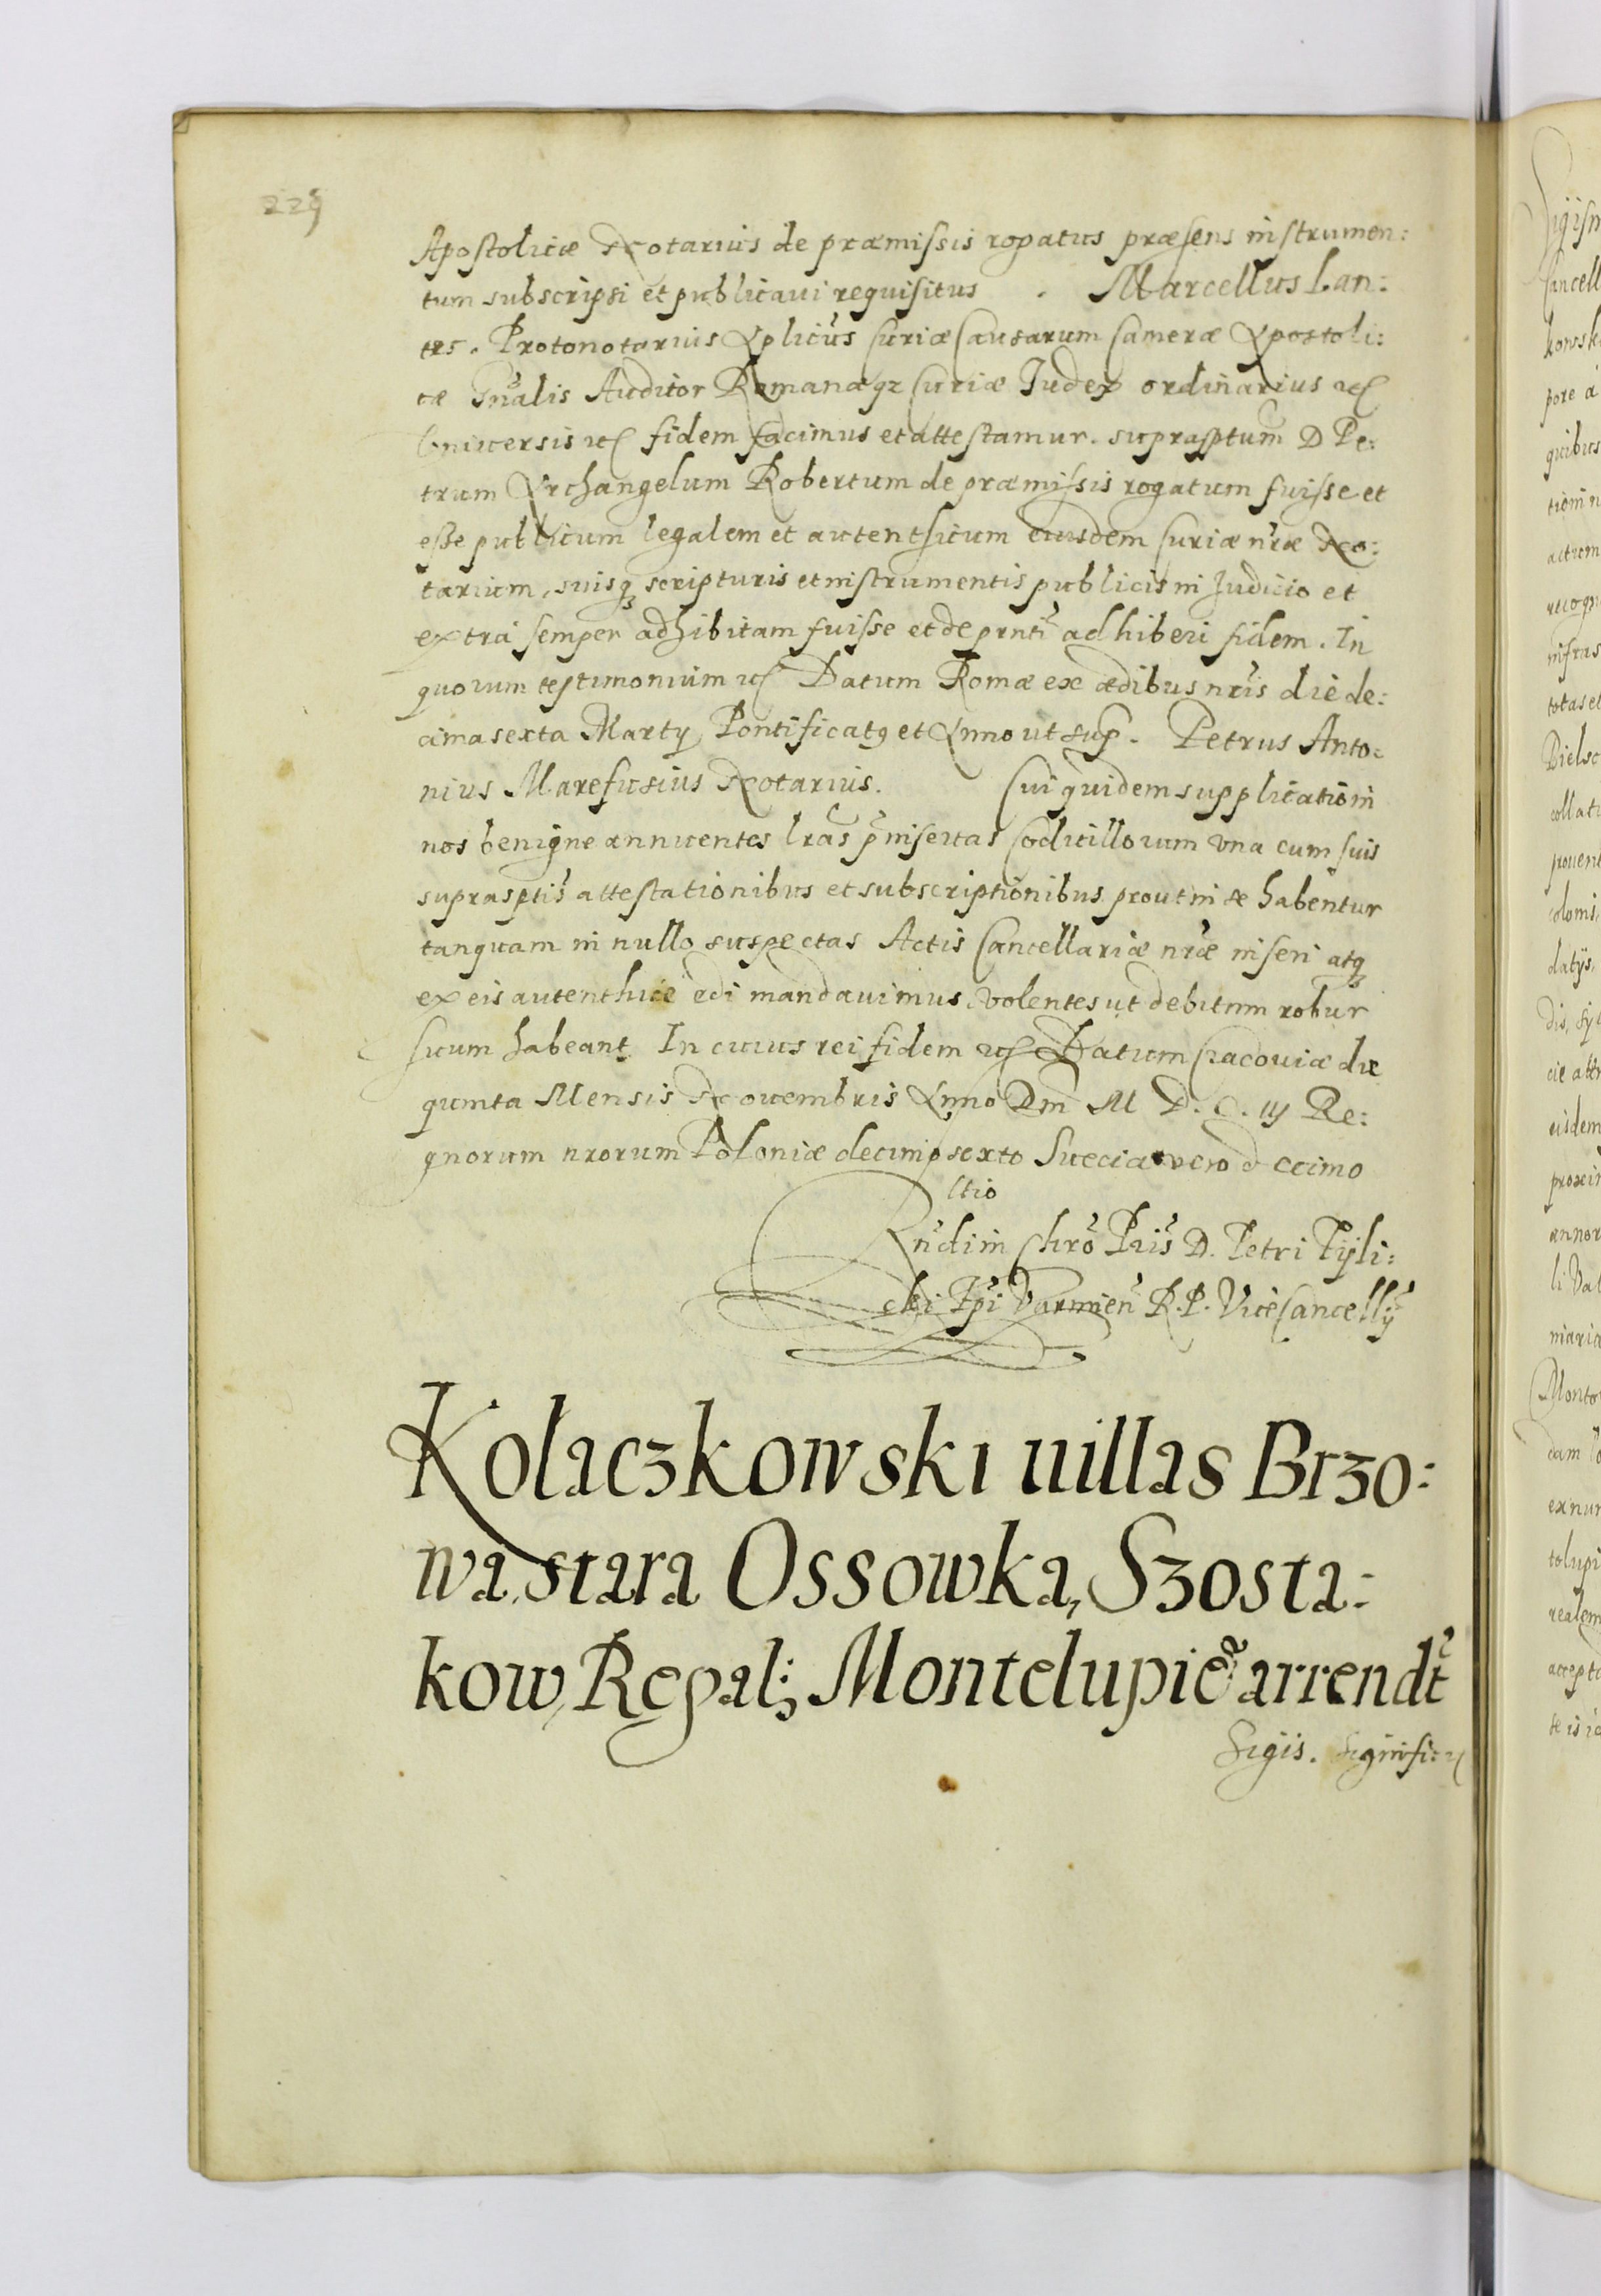 229
Apostolicæ Notarius de præmissis rogatus præsens instrumen:
tum subscripsi et publicaui requisitus . Marcellus Lan:
tes. Protonotarius Aplicus Curiæ Causarum Cameræ Apostoli:
cæ Gñalis Auditor Romanæqz Curiæ Judex ordinarius etc
Vniuersis etc fidem facimus et attestamur. suprasptum D Pe:
trum Archangelum Robertum de præmissis rogatum fuisse et
esse publicum legalem et autenthicum eiusdem Curiæ nræ No:
tarium, suisqz scripturis et instrumentis publicis in Judicio et
extra semper adhibitam fuisse et de prnti adhiberi fidem. In
quorum testimonium etc Datum Romæ ex ædibus nris die de:
cima sexta Martij Pontificatg et Anno ut sup. Petrus Anto:
nius Marefusius Notarius. Cui quidem supplicationi
nos benigne annuentes lras pinsertas Codicillorum vna cum suis
suprasptis attestationibus et subscriptionibus prout in se habentur
tanquam in nullo suspectas Actis Cancellariæ nræ inseri atqz
ex eis autenthice edi mandauimus, volentes ut debitum robur
suum habeant In cuius rei fidem etc Datum Cracouiæ die
quinta Mensis Nouembris Anno Dni M D. C. iij Re:
gnorum nrorum Poloniæ decimo sexto Sueciæ vero decimo
Rndi in Chro Pris D. Petri Tyli:
cki Epi Varmien R. P. ViceCancellij
Kolaczkowski uillas Brzo:
wa, stara Ossowka, Szosta:
kow, Regal: Montelupiē arrendt
Sigis. Significa etc